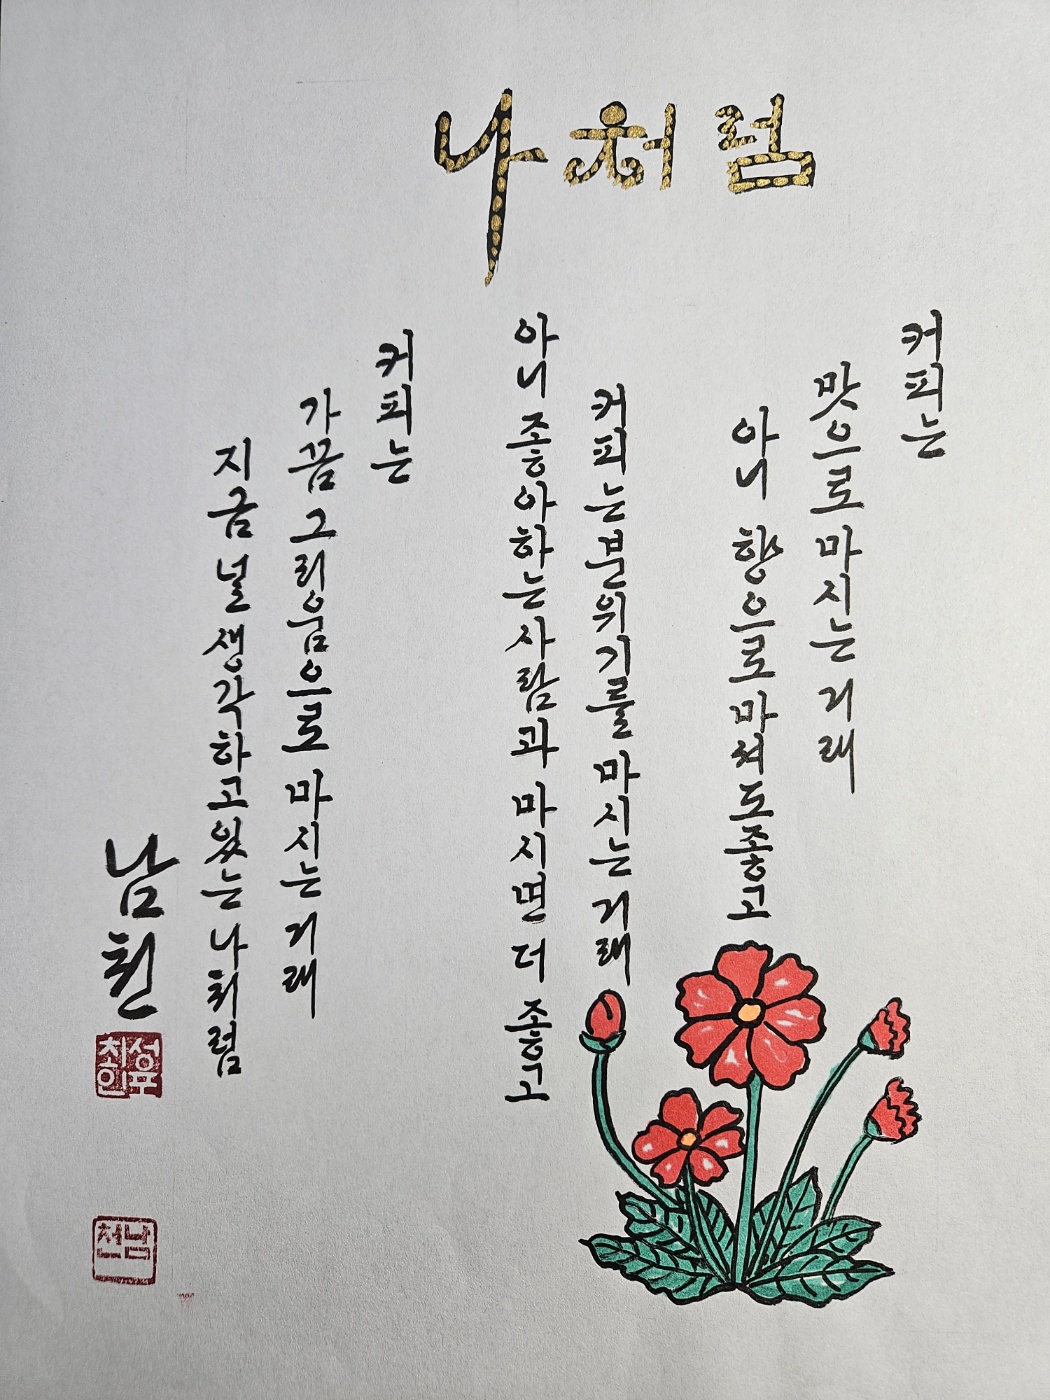 나처럼
커피는
맛으로 마시는 거래
아니 향으로 마셔도 좋고
커피는 분위기를 마시는 거래
아니 좋아하는 사람과 마시면 더 좋고
커피는
가끔 그리움으로 마시는 거래
지금 널 생각하고 있는 나처럼
남천
남천